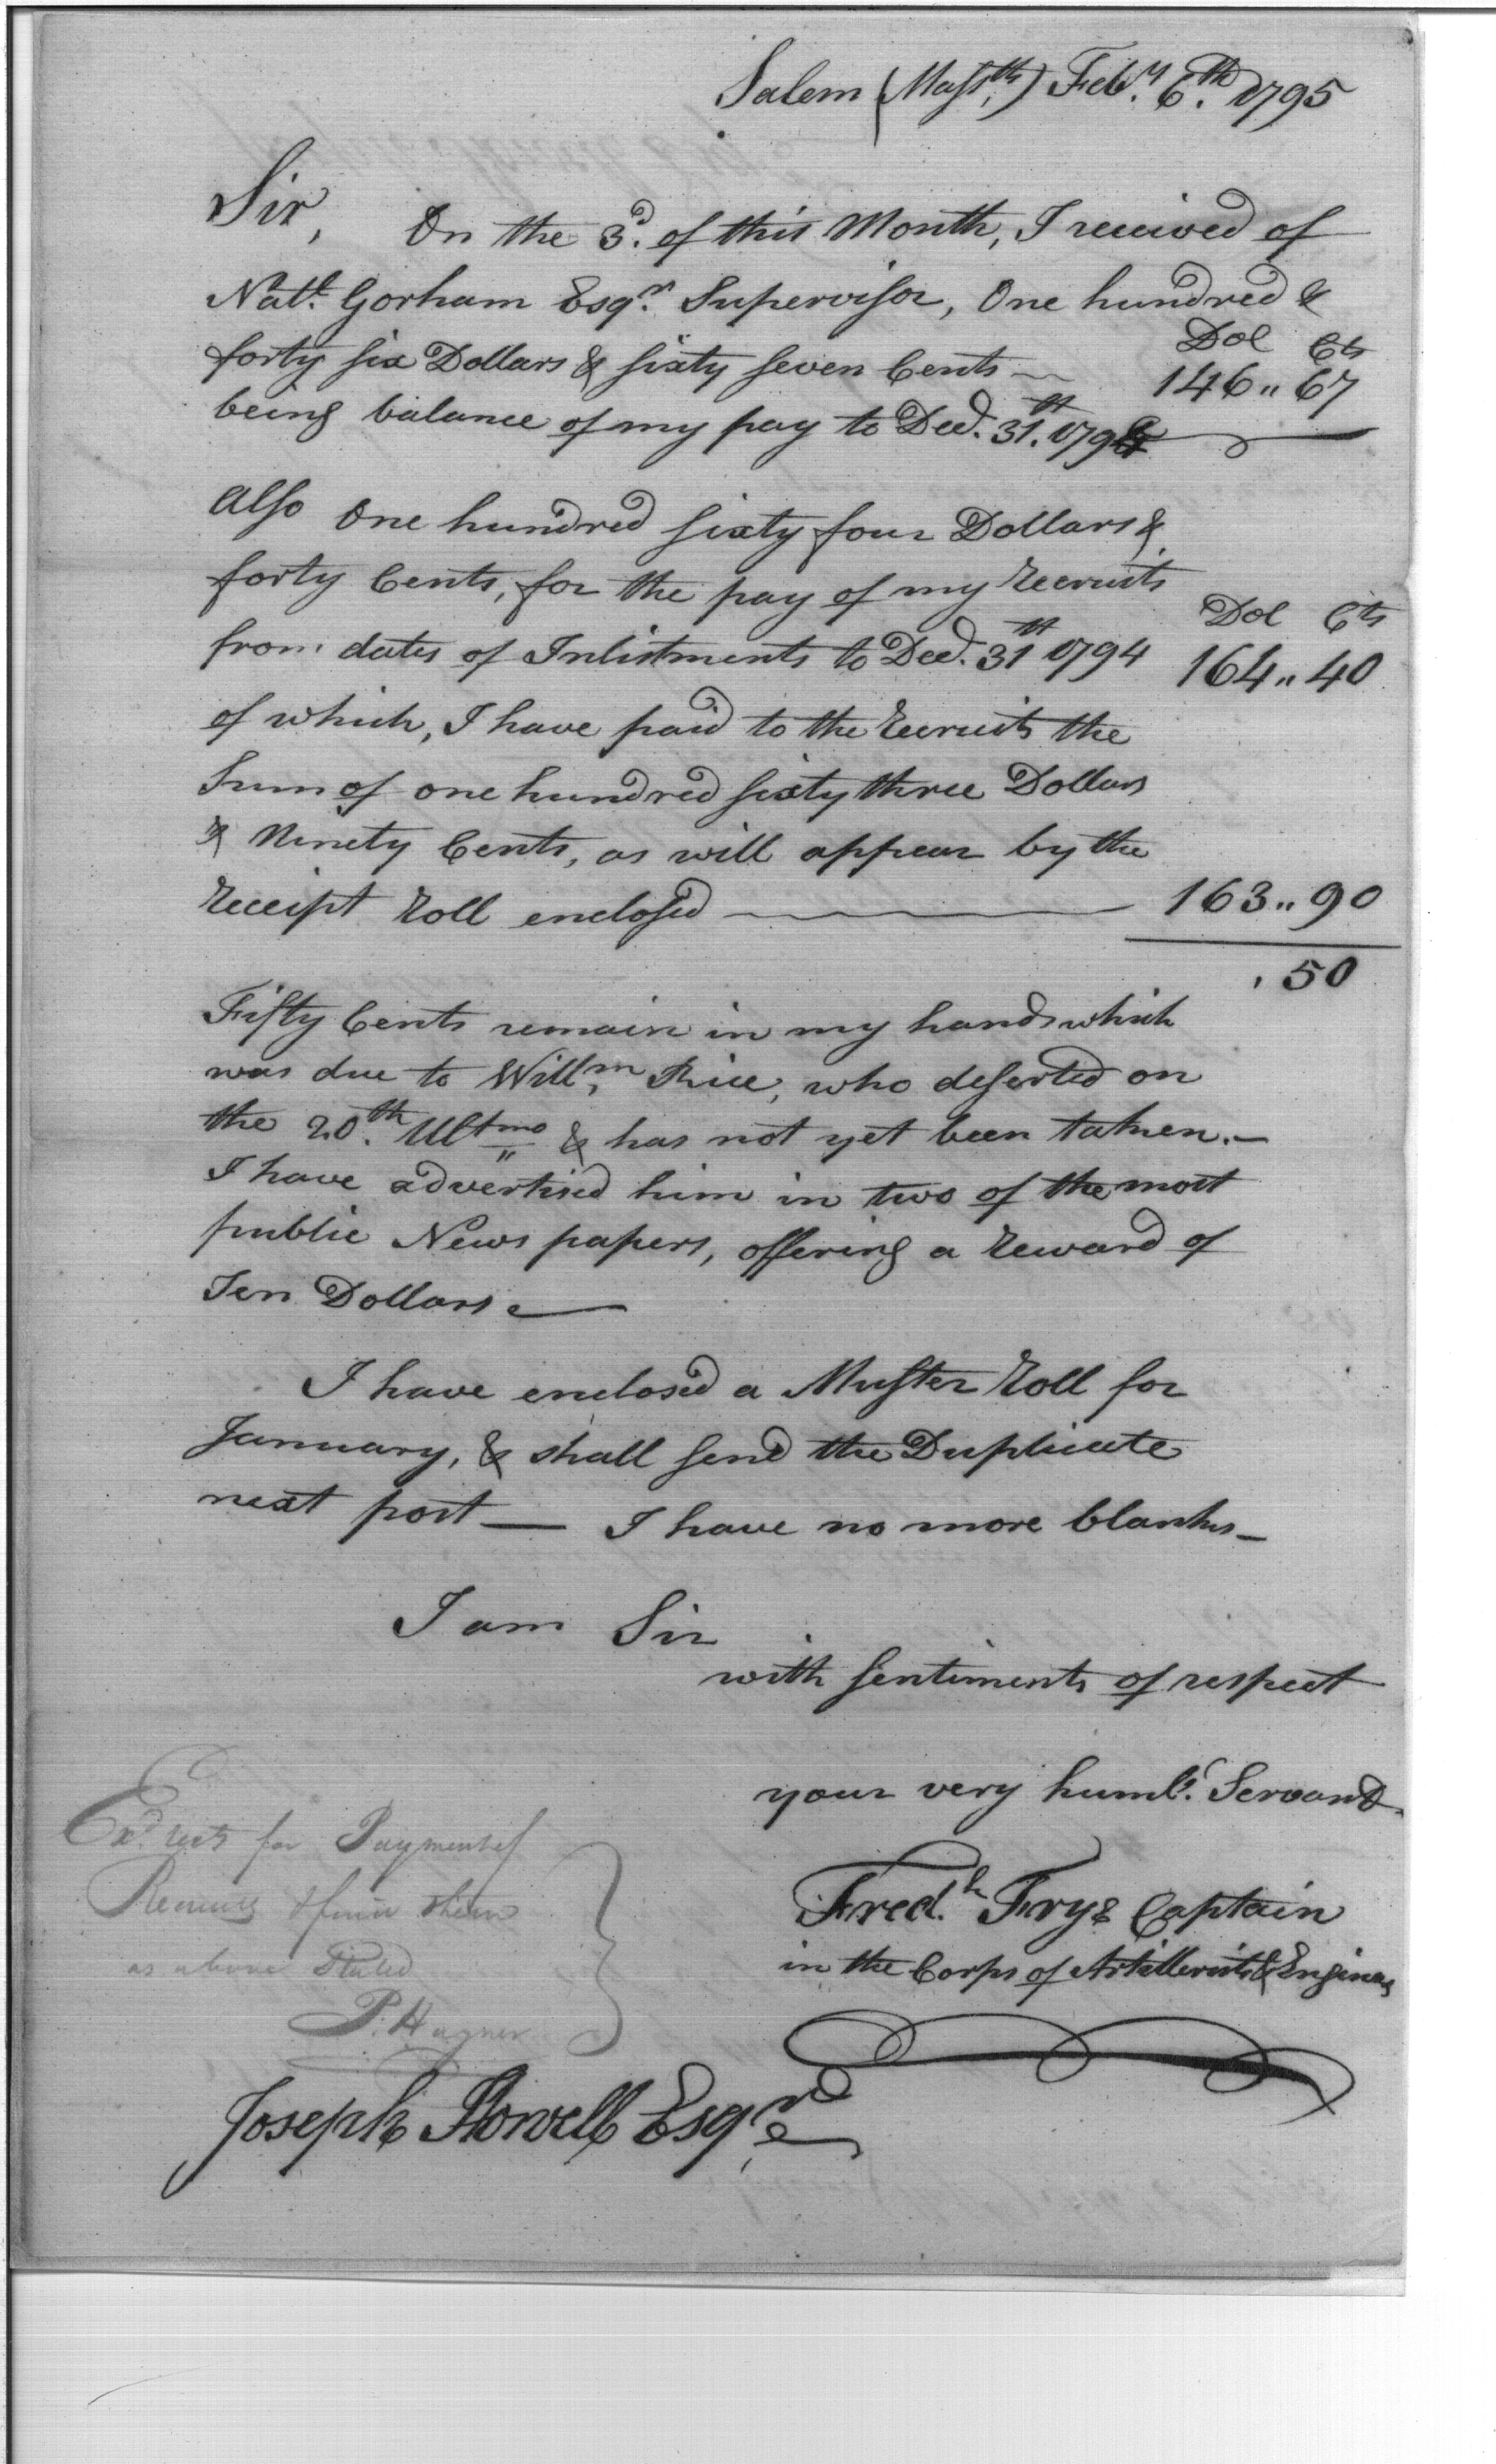 Salem (Massts,) Feby. 6th. 1795
Sir, On the 3d. of this Month, I received of
Natl. Gorham Esqr. Supervisor, One hundred &
Dol Cts
forty six Dollars & sixty seven Cents — 146 " 67
being balance of my pay to Decr. 31st. 1794
Also One hundred sixty four Dollars &
forty Cents, for the pay of my Recruits
Dol Cts
from dates of Inlistments to Decr. 31st 1794 164 " 40
of which, I have paid to the Recruits the
Sum of one hundred sixty three Dollars
& Ninety Cents, as will appear by the
Receipt Roll enclosed — 163 " 90
, 50
Fifty Cents remain in my hands which
was due to Willm, Rice, who deserted on
the 20th. Ultmo & has not yet been taken. —
I have advertised him in two of the most
public News papers, offering a Reward of
Ten Dollars —
I have enclosed a Muster Roll for
January, & shall send the Duplicate
next post — I have no more blanks —
I am Sir
with sentiments of respect
your very humle. Servant
Exd. for Payment of
as above Stated
P. Hagner
Fredk. Frye Captain
in the Corps of Artillerists & Engineers
Joseph Howell Esqr.